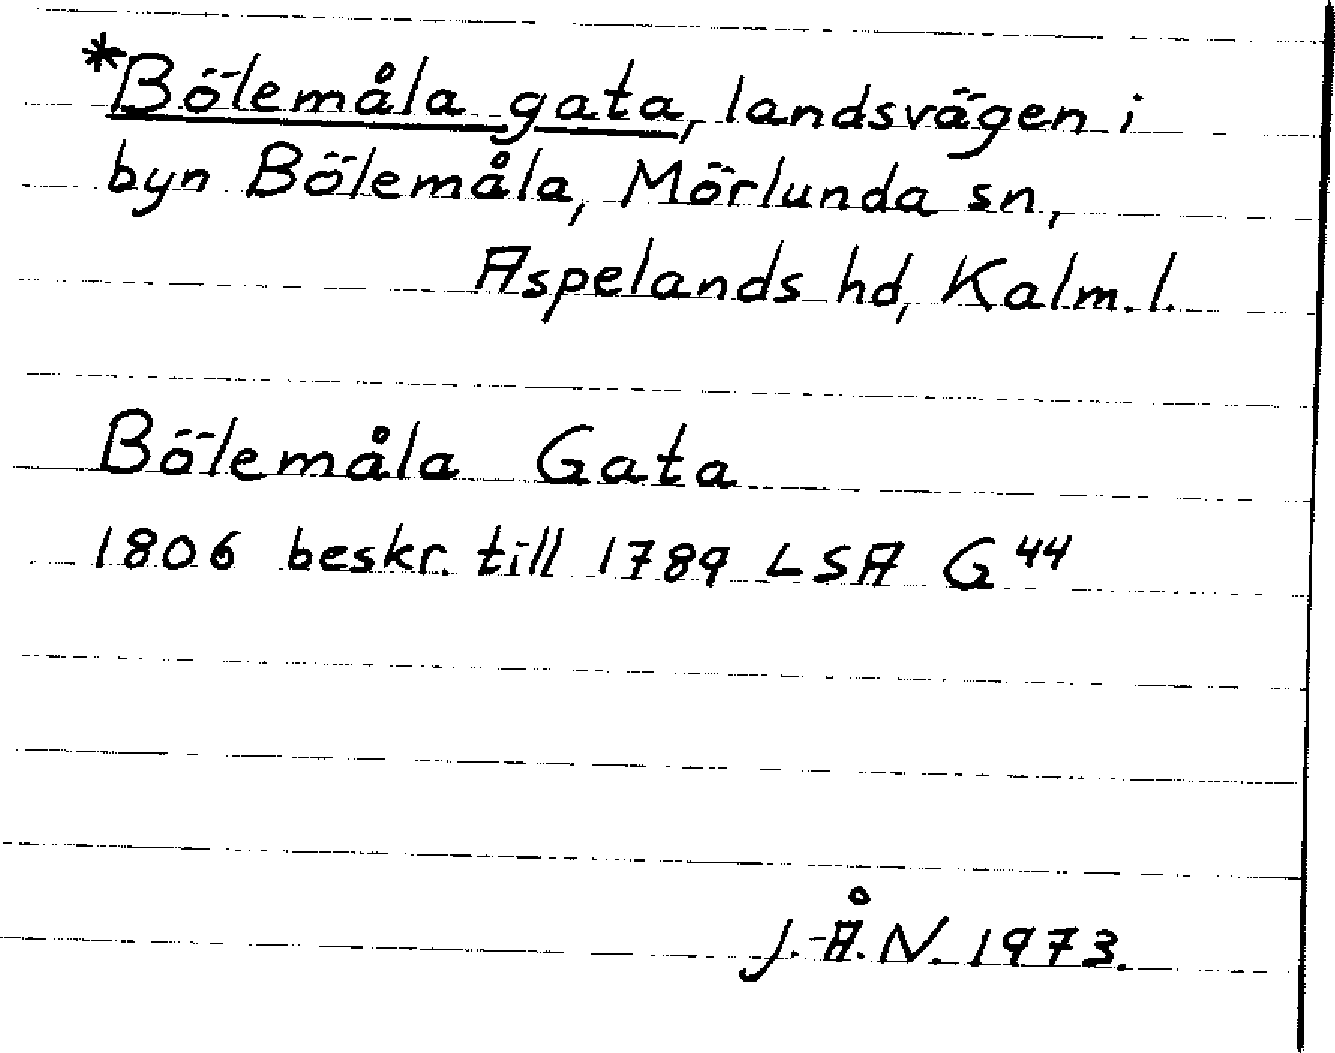 *Bölemåla gata, landsvägen i
byn Bölemåla, Mörlunda sn,
Aspelands hd, Kalm. l.
Bölemåla Gata
1806 beskr. till 1789 LSA G 44
J.-Å. N. 1973.